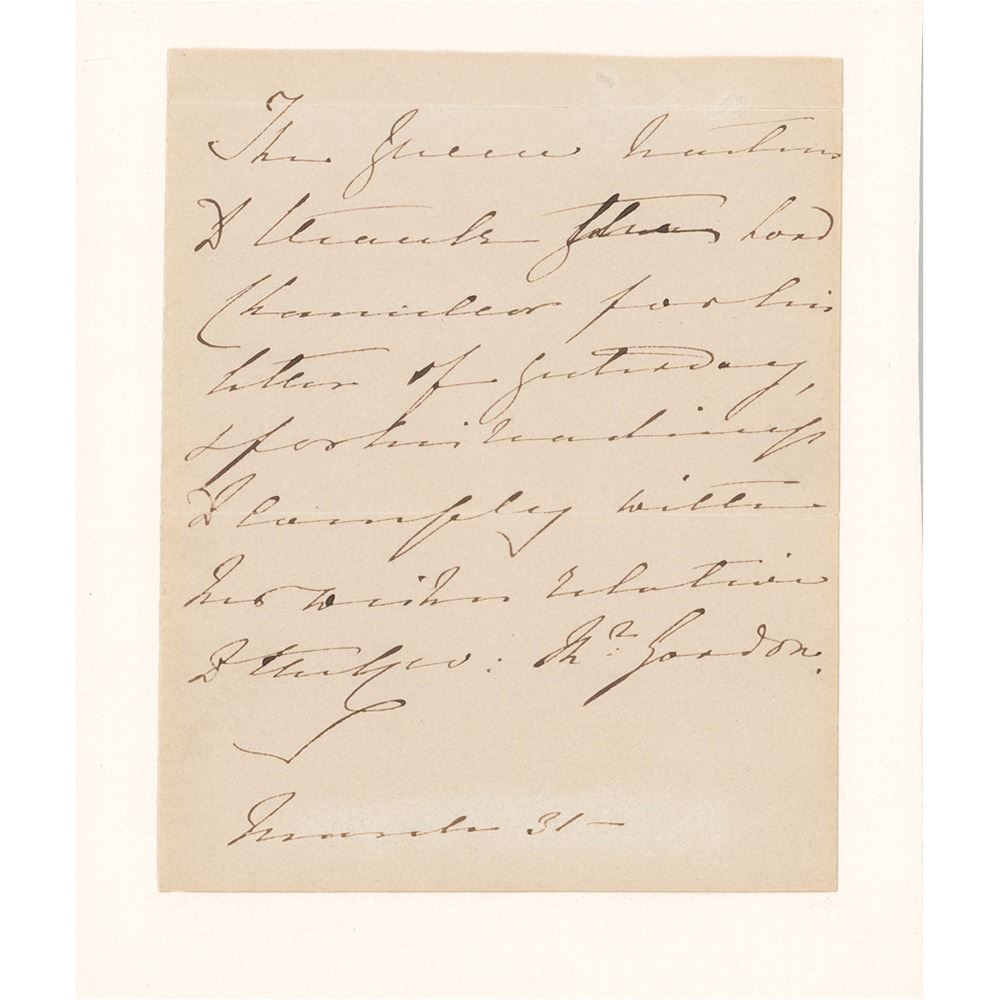 The Queen hastens
to thank the Lord
Chancellor for his
letter of yesterday,
& for his readiness
to comply with
her wishes relative
to the Rev: Mr. Gordon.
March 31—